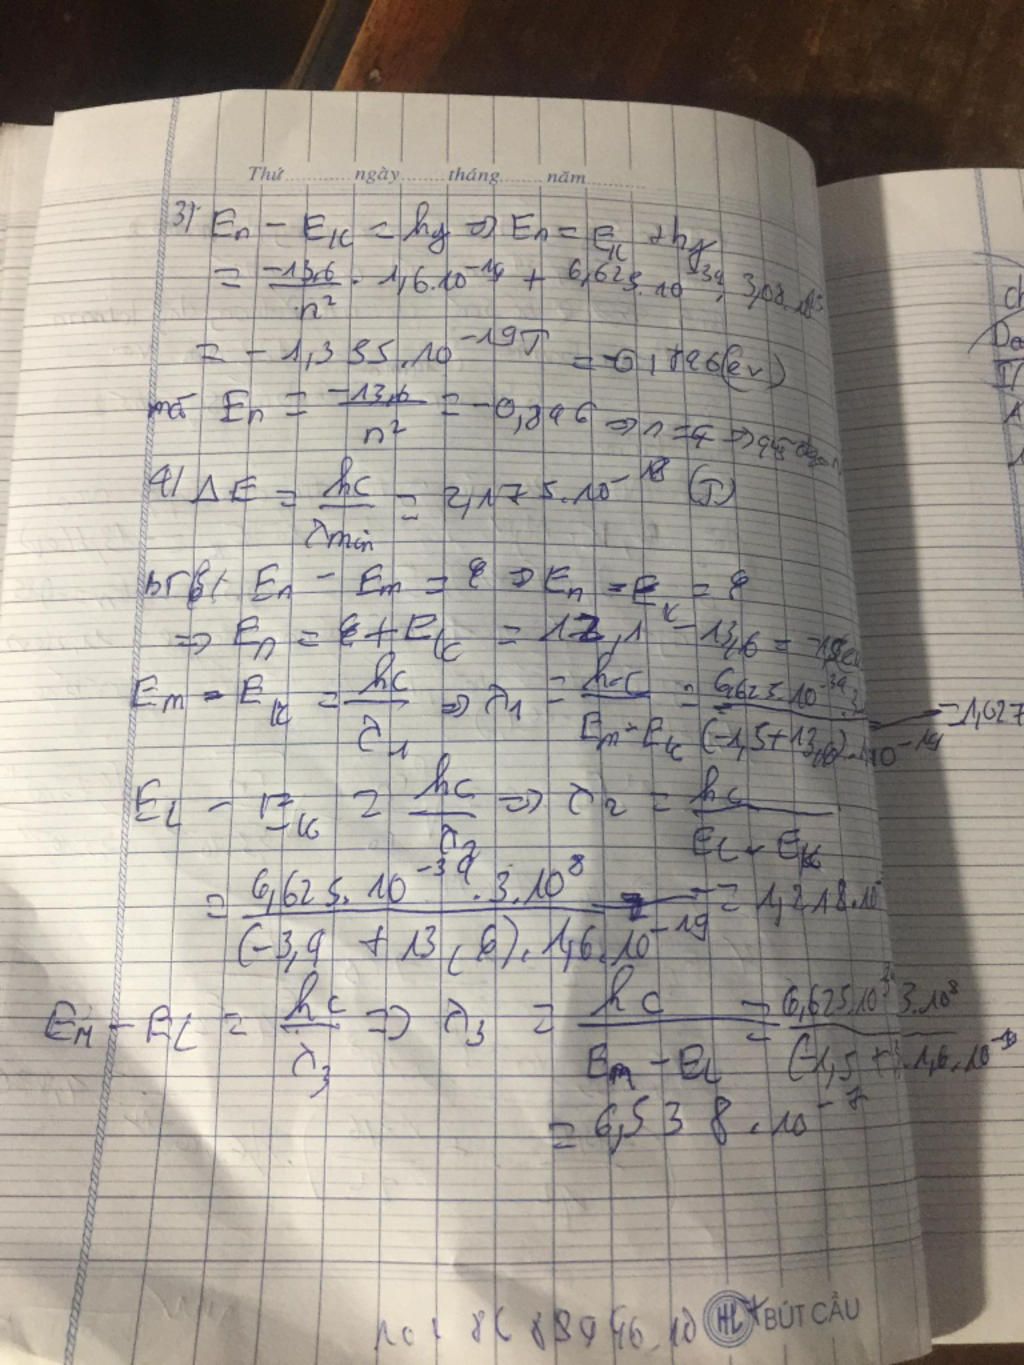 Thứ.............ngày.........tháng.........năm............
3) En - EK = hf => En = EK + hf
= -13,6/n² . 1,6.10^-19 + 6,625.10^-34 . 3,08.10
= -1,355.10^-19 J = -0,846(eV)
mà En = -13,6/n² = -0,846 => n = 4 =>
4) ΔE = hc/λmin = 2,175.10^-18 (J)
En - Em = ε => En - EK = ε
=> En = ε + EK = 12,1 - 13,6 = -1,5 eV
Em - EK = hc/λ1 => λ1 = hc/(Em - EK) = 6,625.10^-34.3/(-1,5+13,6). 10^-19 = 1,027
EL - EK = hc/λ2 => λ2 = hc/(EL - EK)
= 6,625.10^-34.3.10^8/(-3,4 + 13,6).1,6.10^-19 = 1,218.10
EM - EL = hc/λ3 => λ3 = hc/(Em - EL) = 6,625.10^-34 3.10^8/(-1,5 + .1,6.10^-19
= 6,538.10^-7
HL BÚT CẦU